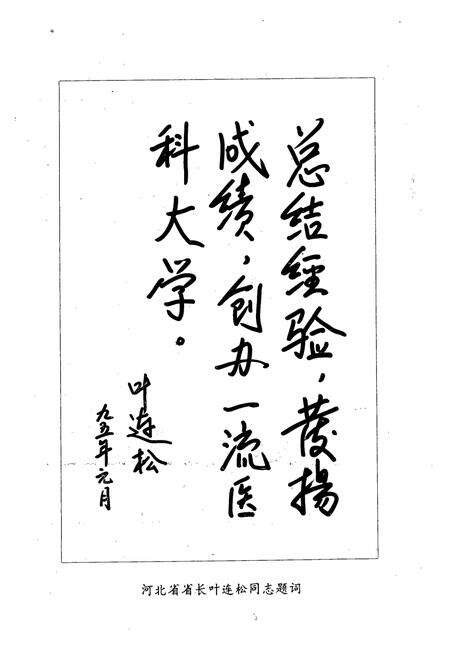 总结经验，发扬
成绩，创办一流医
科大学。
叶连松
九五年元月
河北省省长叶连松同志题词